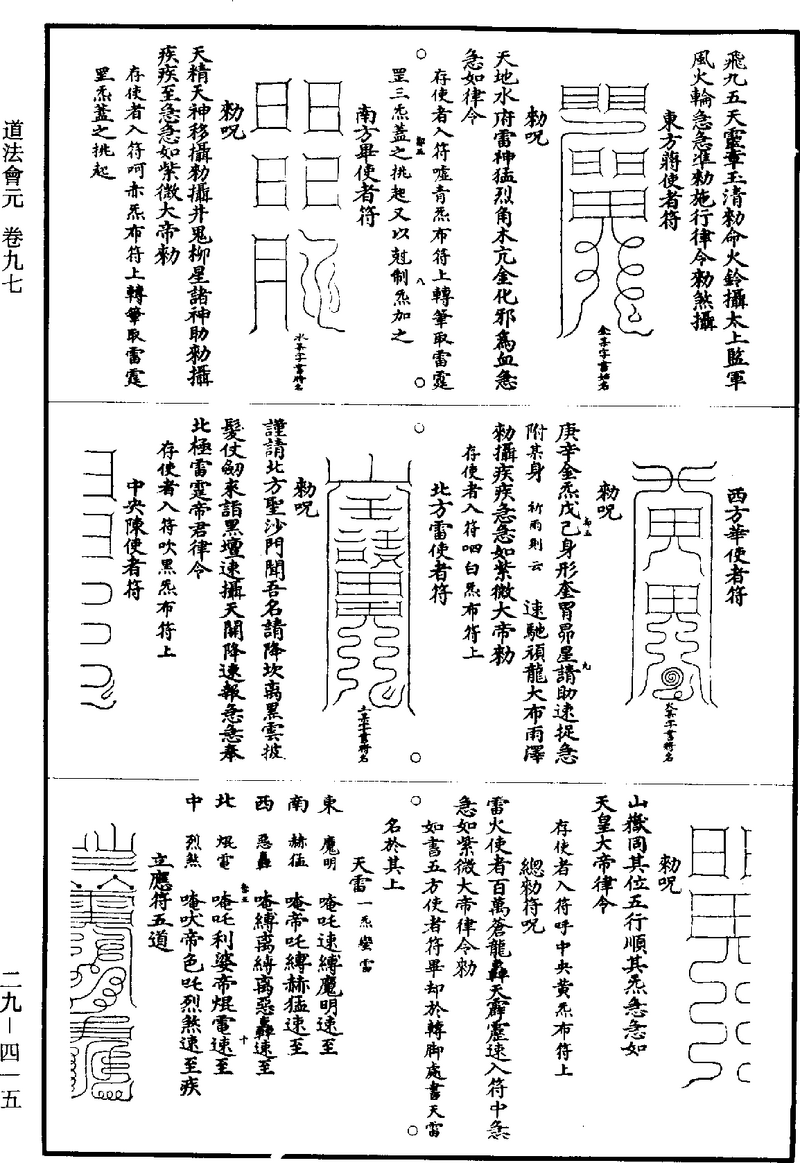 飛九五天靈章玉清勑命火鈴攝太上監軍
風火輪急急准勑施行律令勑煞攝
東方蔣使者符
金炁字書將名
勑呪
天地水府雷神猛烈角木亢金化邪爲血急
急如律令
存使者入符噓青炁布符上轉筆取雷霆
罡三炁蓋之挑起又以尅制炁加之
南方畢使者符
水炁字書將名
勑呪
天精天神移攝勑攝井鬼柳星諸神助勑攝
疾疾至急急如紫微大帝勑
存使者入符呵赤炁布符上轉筆取雷霆
罡炁蓋之挑起
西方華使者符
火炁字書將名
勑呪
庚辛金炁戊己身形奎胃昴星請助速捉急
附某身 祈雨則云 速馳禎龍大布雨澤
勑攝疾疾急急如紫微大帝勑
存使者入符呬白炁布符上
北方雷使者符
土炁字書將名
勑呪
謹請北方聖沙門聞吾名請降坎离黑雲披
髮仗劒來詣黑壇速攝天關降速報急急奉
北極雷霆帝君律令
存使者入符吹黑炁布符上
中央陳使者符
勑呪
山嶽同其位五行順其炁急急如
天皇大帝律令
存使者入符呼中央黄炁布符上
總勑符呪
雷火使者百萬蒼龍轟天霹靂速入符中急
急如紫微大帝律令勑
如書五方使者符畢却於轉脚處書天雷
名於其上
天雷 一炁變雷
東 魔明 唵吒速縛魔明速至
南 赫猛 唵帝吒縛赫猛速至
西 惡轟 唵縛离縛离惡轟速至
北 焜電 唵吒利婆帝焜電速至
中 烈煞 唵吠帝色吒烈煞速至疾
立應符五道
道法會元 卷九七
二九－四一五